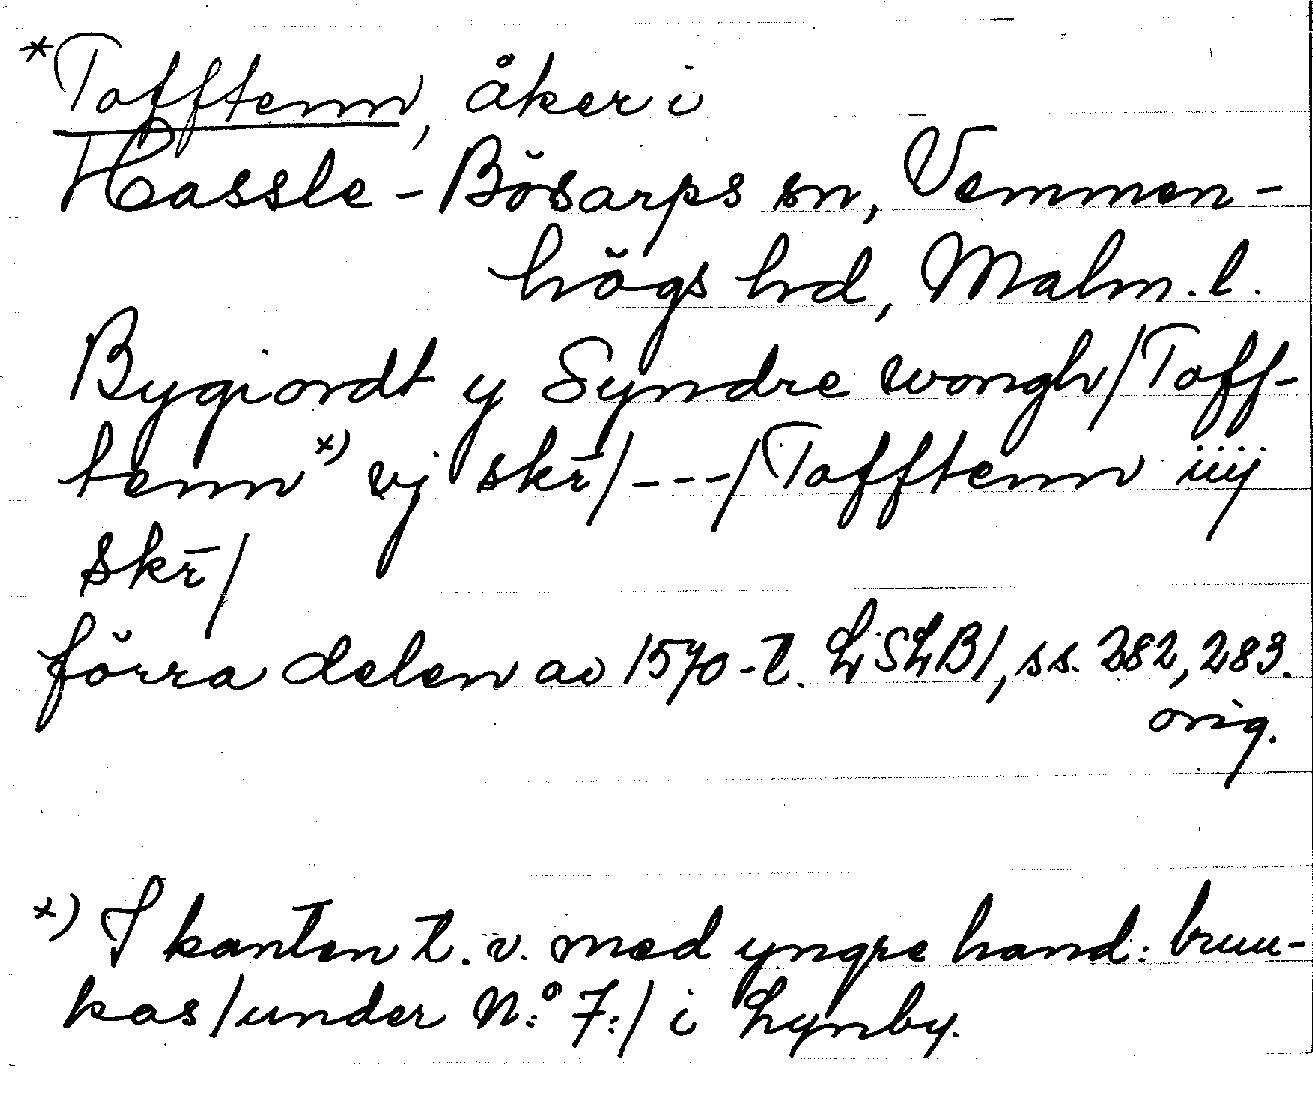 *Tofftenn, åker i
Hassle-Bösarps sn, Vemmen-
högs hd, Malm. l.
Bygiordt y Syndre wongh/Toff-
tenn x) vj skr̄/---/Tofftenn iiij
skr̄/
förra delen av 1570-t. LSLB1, ss. 282, 283.
orig.
x) I kanten t. v. med yngre hand: bruu-
kas/under N:o 7:/ i Lynby.